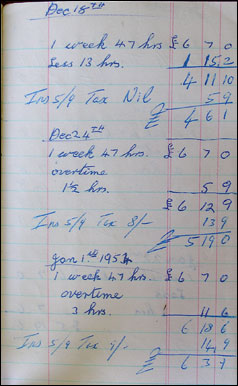 Dec 18th
1 week 47 hrs £6 7 0
Less 13 hrs. 1 15 2
4 11 10
Ins 5/9 Tax Nil 5 9
£ 4 6 1
Dec 24th
1 week 47 hrs. £6 7 0
overtime
1½ hrs. 5 9
£6 12 9
Ins 5/9 Tax 8/- 13 9
£ 5 19 0
Jan 1st 1954
1 week 47 hrs. £6 7 0
overtime
3 hrs. 11 6
6 18 6
Ins 5/9 Tax 9/- 14 9
£ 6 3 7